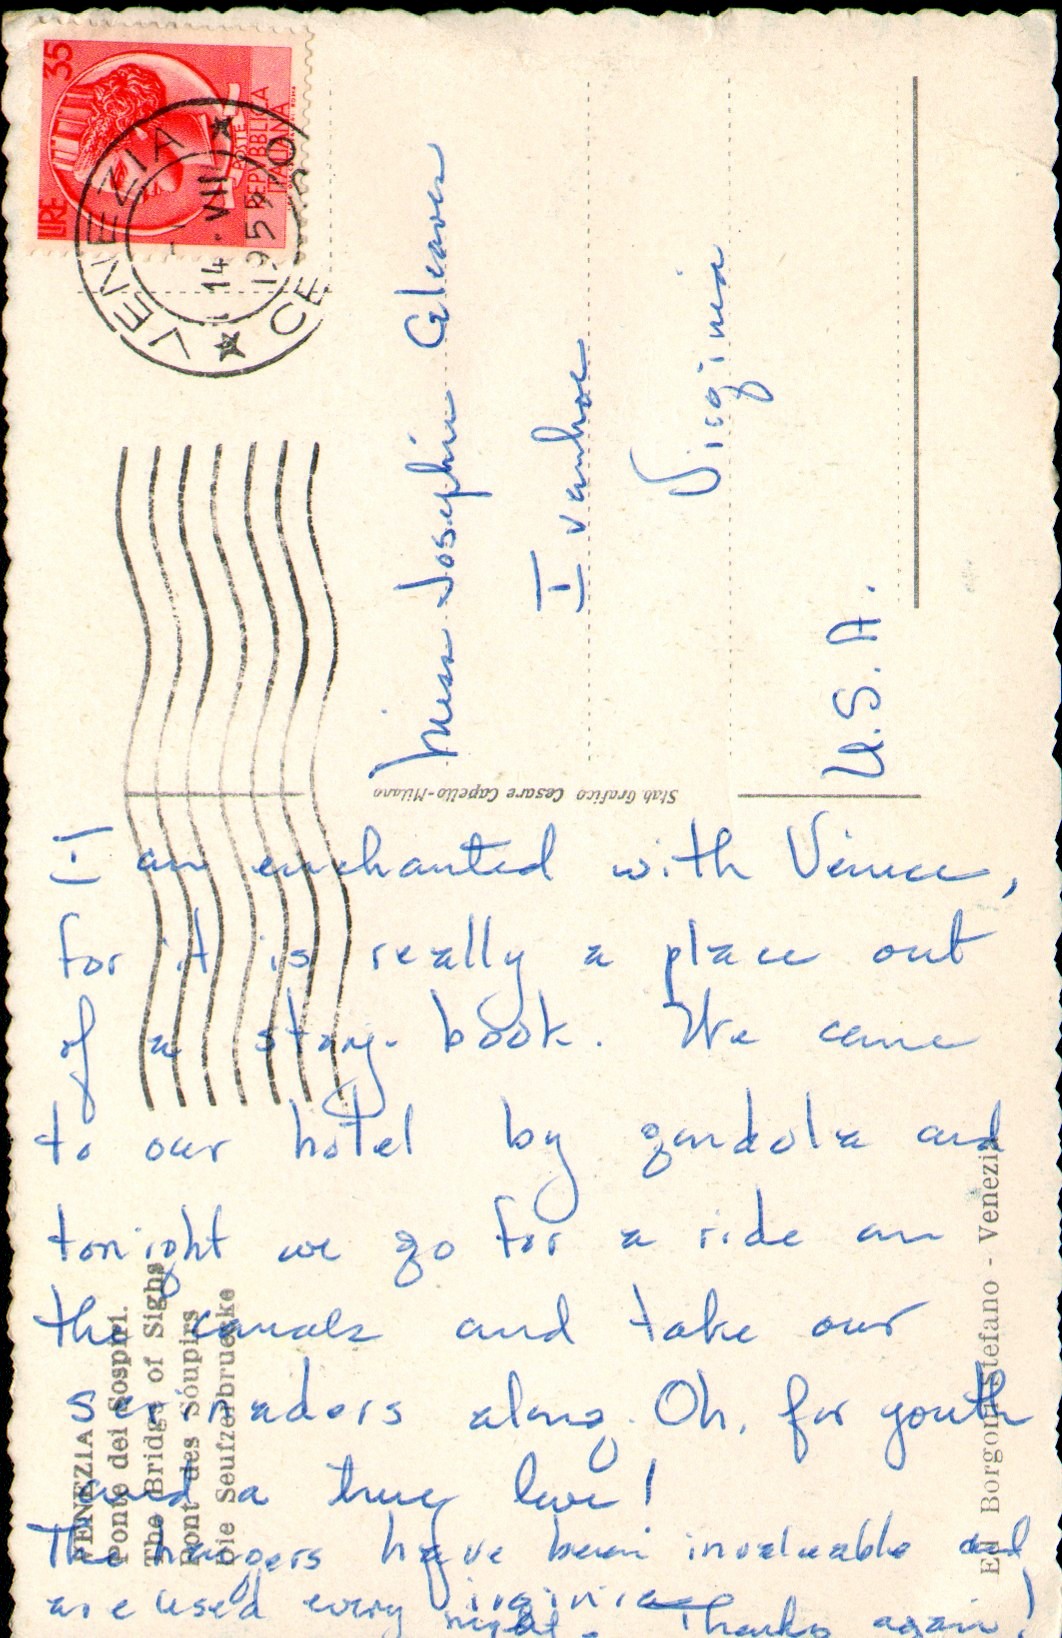 LIRE 35
POSTE
REPVBBLICA
ITALIANA
VENEZIA
14 · VII
195
Miss Josephine Cleaver
Ivanhoe
Virginia
U.S.A.
Stab Grafico Cesare Capello-Milano
I am enchanted with Venice,
for it is really a place out
of a story-book. We came
to our hotel by gondola and
tonight we go for a ride on
the canals and take our
serinaders along. Oh, for youth
and a true love!
The hangers have been invaluable and
are used every night. Thanks again!
Virginia
VENEZIA
Ponte dei Sospiri.
The Bridge of Sighs
Pont des Soupirs
Die Seufzerbruecke
Ed Borgoni Stefano - Venezia